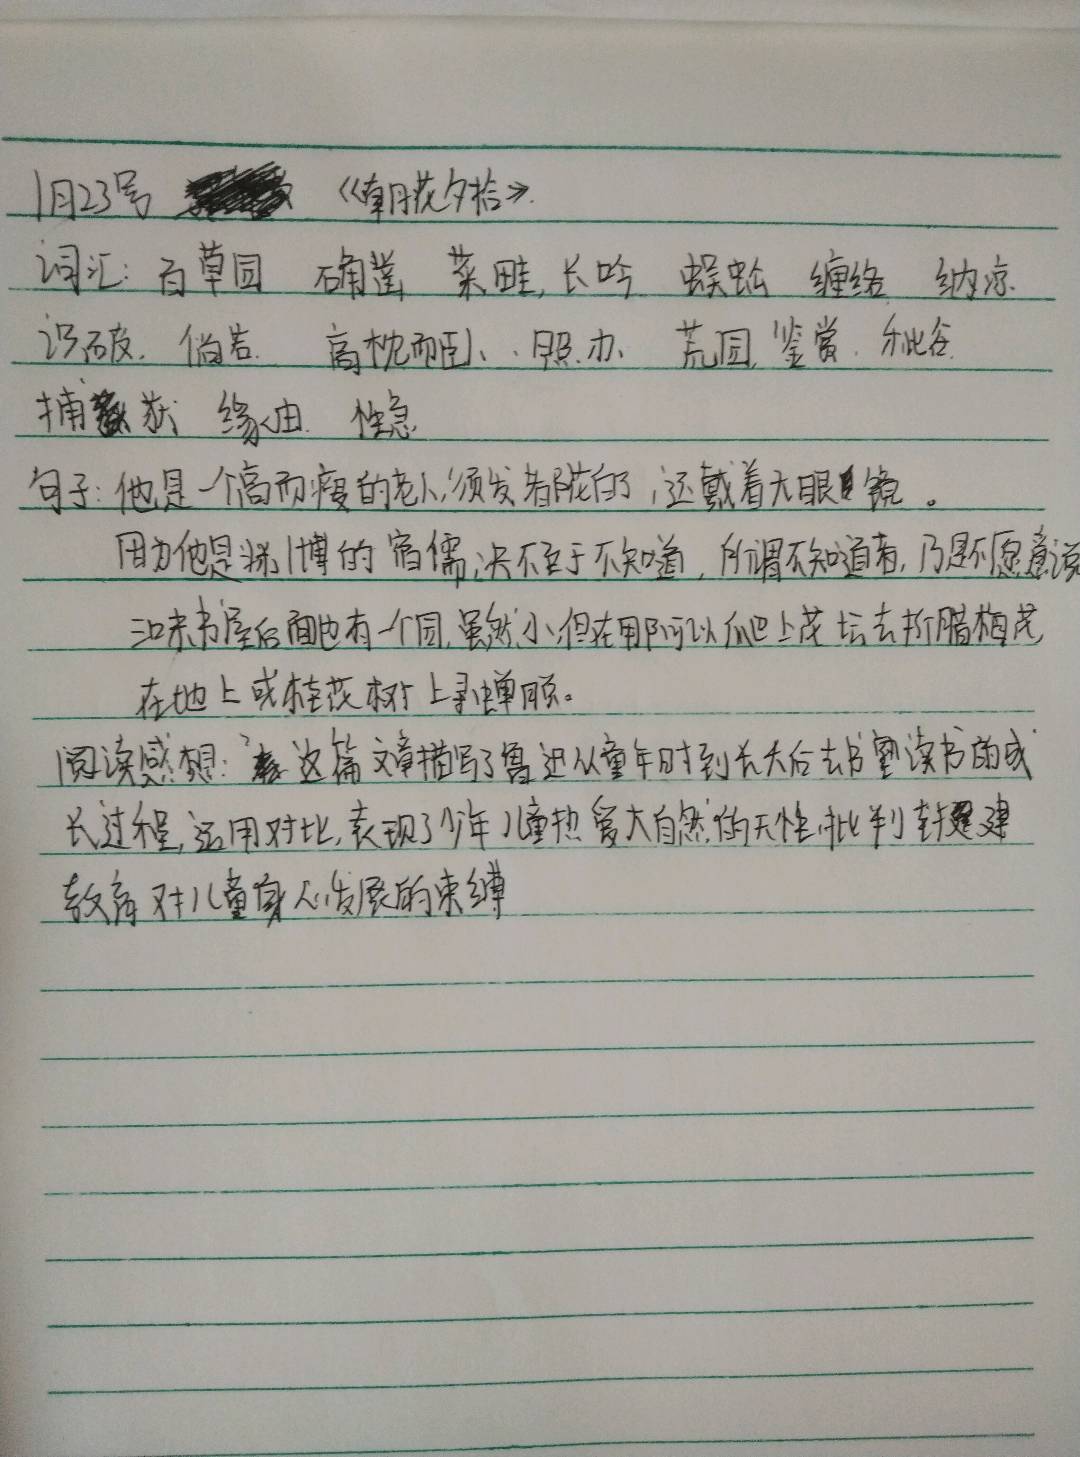 1月23号 《朝花夕拾》.
词汇: 百草园 确凿 菜畦, 长吟 蜈蚣 缠络 纳凉
识破. 倘若. 高枕而卧、 照办、 荒园, 鉴赏. 秕谷.
捕获 缘由. 性急
句子: 他是一个高而瘦的老人,须发都花白了,还戴着大眼镜。
因为他是渊博的宿儒,决不至于不知道,所谓不知道者,乃是不愿意说
三味书屋后面也有一个园,虽然小,但在那阿以爬上花坛去折腊梅花
在地上或桂花树上寻蝉脱。
阅读感想: 这篇文章描写了鲁迅从童年时到长大后去书塾读书的成
长过程,运用对比,表现了少年儿童热爱大自然的天性,批判封建
教育对儿童身心发展的束缚